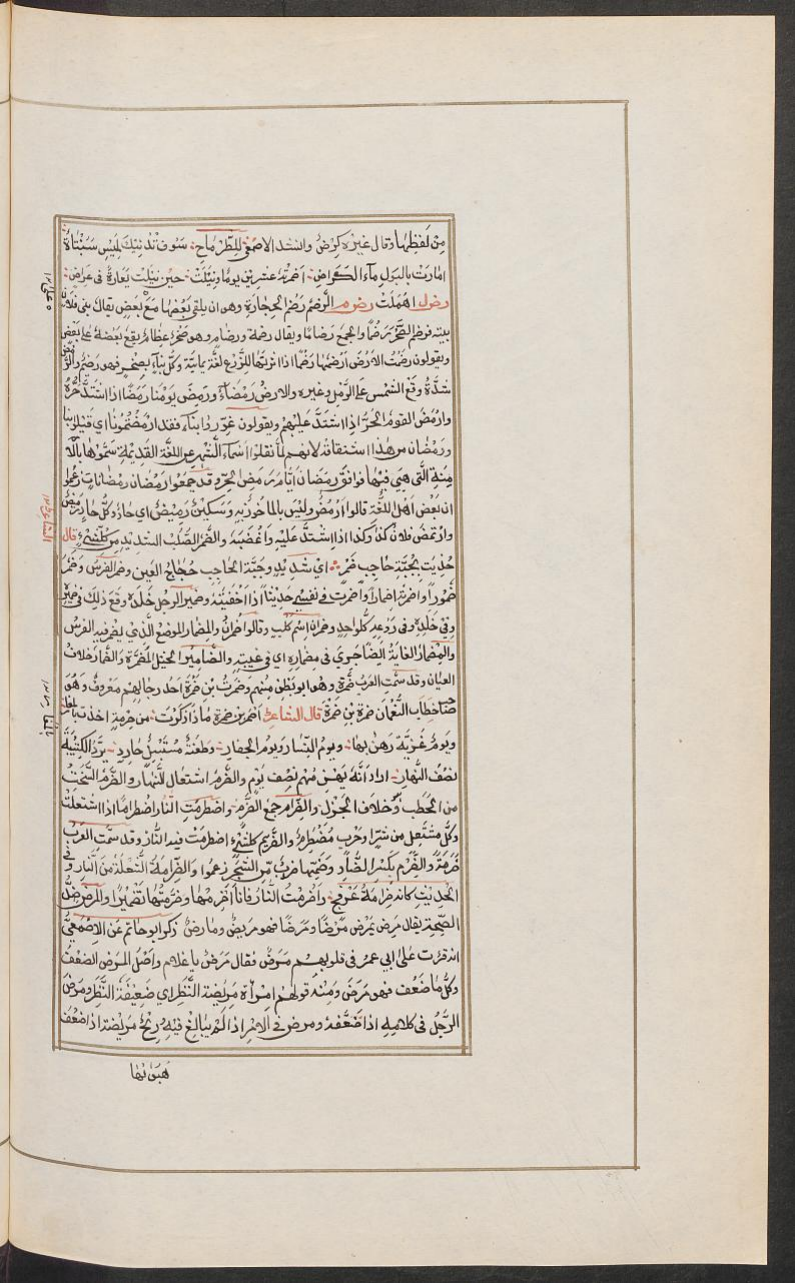 من لفظها وقال غيره كِرْضٌ وانشد الاصمعى للطرماح سَوف تُدنِيك لَمِيس سَبَنْتاةٌ
امارت بالبول مآء الكراض اضمرته عشرين يوما ونيلت حين نيلت يعارة فى عراض
رض ل اهملت رض م الرَّضم رَضم الحجارة وهو ان يلقى بعضها مع بعض يقال بنى فلان
بيته فرضم الصخر رضما والجمع رضاما ويقال رضمة ورضام وهو صخر عظام يقع بعضه على بعض
ويقولون رضمت الارض ارضمها رضما اذا اثرتها للزرع لغة يمانية وكل بناء بصخر فهو رضيم والرمض
شدة وقع الشمس على الرمل وغيره والارض رمضاء ورمض يومنا رمضا اذا اشتد حره
وارمض القوم الحر اذا اشتد عليهم ويقولون غوروا بنا فقد ارمضتمونا اي قيلوا بنا
ورمضان من هذا اشتقاقه لانهم لما نقلوا اسماء الشهر عن اللغة القديمة سموها بالا
منة التى هى فيها فوافق رمضان ايام رمض الحر وقد جمعوا رمضان رمضانات زعموا
ان بعض اهل اللغة قالوا ارمض وليس بالماخوذ به وسكين رميض اي حاد وكل حاد رميض
وارتمض فلان كذا وكذا اذا اشتد عليه واغضبه والضمر الصلب الشديد من كل شئ قال
حجبة حاجب ضمر اي شديد وحجبة الحاجب حجاج العين وضمر الفرس وضمر
ضمورا واضمرته اضمارا واضمرت فى نفسى حديثا اذا اخفيته وضمير الرجل خلده وقع ذلك فى ضميره
وفى خلده وفى روعه كله واحد وضمران اسم كلب وقالوا ضمران والمضمار الموضع الذي يضمر فيه الفرس
والمضمار الغاية ايضا جرى فى مضماره اي فى غيبته والضامير الخيل المضمرة والضمار خلاف
العيان وقد سمت العرب ضمرة وهو ابو بطن منهم وضمرة بن ضمرة احد رجالهم معروف وهو
خطاب النعمان ضمرة بن ضمرة قال الشاعر اضمر بن ضمرة ماذا ذكرت من صرمة اخذت بالمغار
ويوم غزية رهن بها ويوم النسار ويوم الجفار وطعنة مستبسل حارد ترد الكتيبة
نصف النهار اراد انه يهزمهم نصف يوم والضرم اشتعال النهار والضرم الشخت
من الحطب وخلاف الجزل والضرام جمع الضرم واضطرمت النار اضطراما اذا اشتعلت
وكل مشتعل من شئ او حرب مضطرم والضريم كل شئ اضطرمت فيه النار وقد سمت العرب
ضرمة والضرم بكسر الضاد وضمها ضرب من الشجر زعموا والضرامة الشعلة من النار وفى
الحديث كانه ضرامة عرفج واضرمت النار فانا اضرمها وضرمتها تضميرا والمرض ضد
الصحة يقال مرض يمرض مرضا ومرضا فهو مريض ومارض ذكر ابو حاتم عن الاصمعى
انه قرات على ابى عمر فى قلوبهم مرض فقال مرض يا غلام واصل المرض الضعف
وكل ما ضعف فهو مرض ومنه قولهم امراة مريضة النظر اي ضعيفة النظر ومرض
الرجل فى كلامه اذا ضعفه ومرض فى الامر اذا لم يبالغ فيه وريح مريضة اذا ضعف
هبوبها